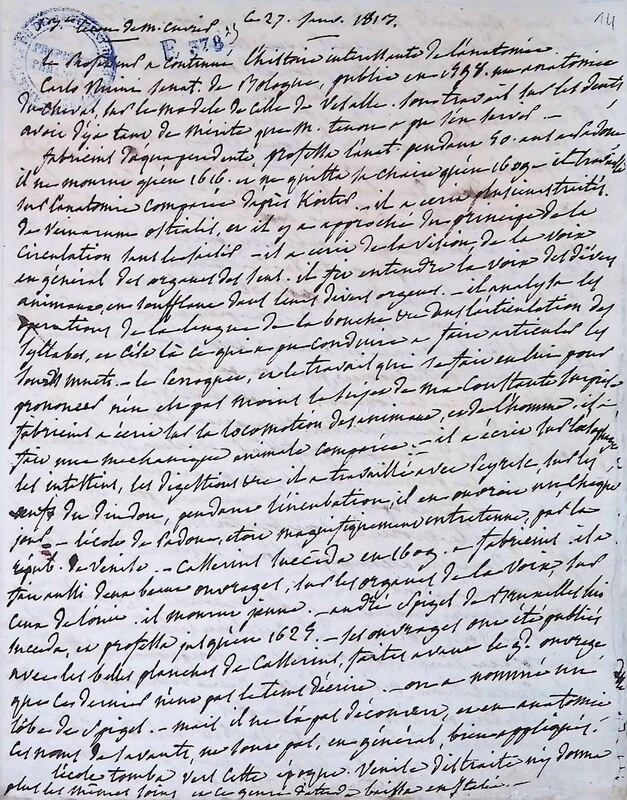 leçon de M. Cuvier, le 27. Janv. 1817.
14
E 378
Le Professeur a continué l'histoire interessante de l'anatomie.
Carlo Ruini Senat. de Bologne, publia en une anatomie
du cheval, sur le modele de celle de Vesalle. Son travail sur les dents
avoit déja tant de mérite que M. Tenon a pu s'en servir. —
Fabricius d'aquapendente, professa l'anat. pendant 50. ans a Padoue
il ne mourut qu'en 1616. et ne quitta sa chaire qu'en 1609. il travailla
sur l'anatomie comparée d'après — il a écrit plusieurs traités.
de Venarum ostiolis, et il y a approché du principe de la
circulation sans le saisir — il a écrit de la vision, de la voix
en général des organes des sens. il fit entendre la voix des divers
animaux, en soufflant dans leurs divers organes. — il analysa les
operations de la langue de la bouche &c dans l'articulation des
syllabes, et c'est là ce qui a pu conduire a faire articuler les
sourds muets. — le perroquet, et le travail qui se fait en lui pour
prononcer n'en est pas moins le sujet de ma constante surprise
fabricius a écrit sur la locomotion des animaux, et de l'homme. il a
fait une mechanique animale comparée. — il a écrit sur
les intestins, les digestions &c il a travaillé avec Peyresc, sur les
œufs du dindon, pendant l'incubation, il en ouvroit un, chaque
jour — l'école de Padoue, étoit magnifiquement entretenue, par la
repub. de Venise. — Casserius succéda en 1609. a fabricius. il a
fait aussi deux beaux ouvrages, sur les organes de la voix, sur
ceux de l'ouïe. il mourut jeune. — andré Spigel de Bruxelles lui
succeda, et professa jusqu'en 1625. — ses ouvrages ont été publiés
avec les belles planches de Casserius, faites avant le gd. ouvrage
que ce dernier n'eut pas le tems d'écrire. — on a nommé un
lôbe de Spigel. — mais il ne l'a pas découvert, et en anatomie
ces noms de savants, ne sont pas, en général, bien appliqués.
l'école tomba vers cette époque. Venise distraite n'y donna
plus les mêmes soins et ce genre d'étude baissa en Italie. —